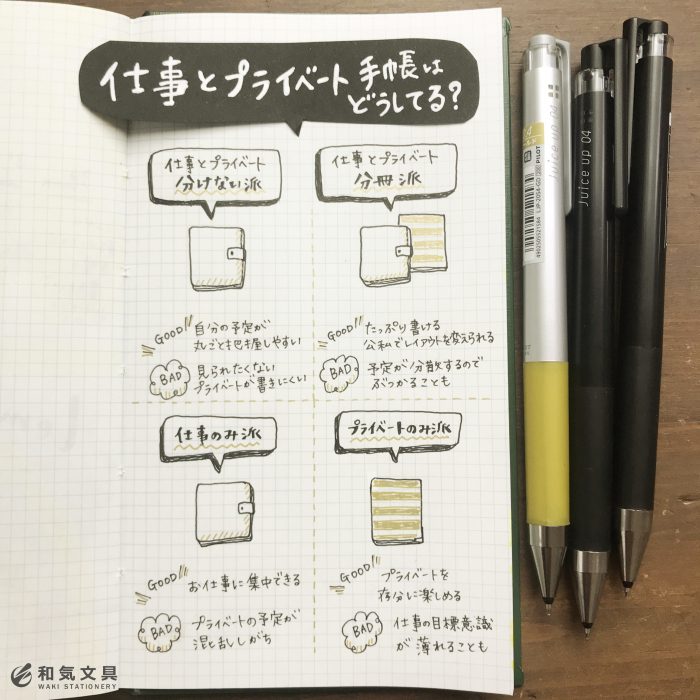 仕事とプライベート手帳は
どうしてる?
仕事とプライベート
分けない派
仕事とプライベート
分冊派
GOOD
自分の予定が
丸ごと把握しやすい
BAD
見られたくない
プライベートが書きにくい
GOOD
たっぷり書ける
公私でレイアウトを変えられる
BAD
予定が分散するので
ぶつかることも
仕事のみ派
プライベートのみ派
GOOD
お仕事に集中できる
BAD
プライベートの予定が
混乱しがち
GOOD
プライベートを
存分に楽しめる
BAD
仕事の目標意識
が薄れることも
Juice up 04
PILOT
Juice up 04
和気文具
WAKI STATIONERY